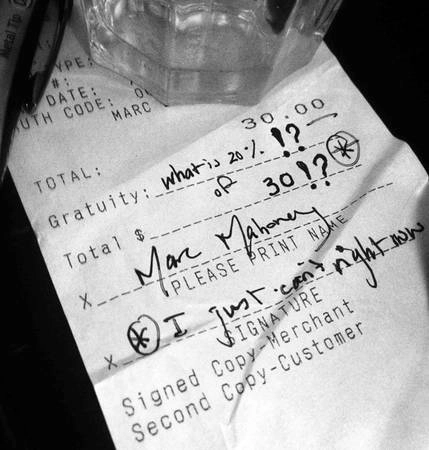 Metal Tip
TYPE:
#:
DATE:
AUTH CODE: MARC
TOTAL: 30.00
Gratuity: what is 20% !?
Total $ of 30!? *
X Marc Mahoney
PLEASE PRINT NAME
X * I just can't right now
SIGNATURE
Signed Copy-Merchant
Second Copy-Customer